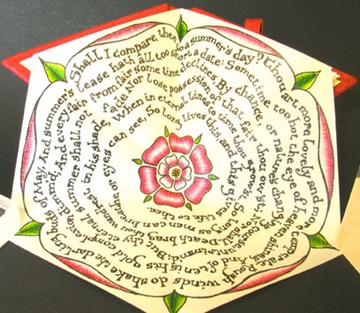 Shall I compare thee to a summer's day? Thou art more lovely and more temperate: Rough winds do shake the darling buds of May, And summer's
lease hath all too short a date: Sometime too hot the eye of heaven shines, And often is his gold complexion dimm'd, And every fair
from fair some time declines, By chance, or nature's changing course untrimm'd: But thy eternal summer shall not
fade, Nor lose possession of that fair thou ow'st, Nor shall Death brag thou wander'st in his shade,
When in eternal lines to time thou grow'st, So long as men can breathe or eyes
can see, So long lives this and this gives life to thee.